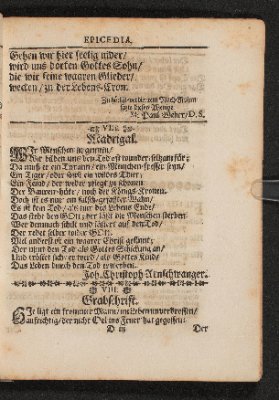 EPICEDIA.
Gehen wir hier seelig nider/
wird uns dorten Gottes Sohn/
die wir seine waaren Glieder/
wecken/ zu der Lebens-Cron.
setzte dieses Wenige
M. Paul Weber/ D. S.
VII.
Madrigal.
Wir Menschen in gemein/
Wir bilden uns den Tod oft wunder-seltzam für;
Da muß er ein Tyrann/ ein Menschen-fresser seyn/
Ein Tiger/ oder sonst ein wildes Thier;
Ein Feind/ der weder pflegt zu schonen
Der Bauren-hüte/ noch der Königs-Kronen.
Doch ist es nur ein falsch-gefaßter Wahn/
Es ist kein Tod/ als nur des Lebens Ende/
Das steht bey GOtt; der läßt die Menschen sterben
Wer demnach schilt und lästert auf den Tod/
Der redet selber wider GOtt.
Viel anderst ist ein waarer Christ gesinnt;
Der nimt den Tod als Gottes Schickung an/
Und tröstet sich/ er werd/ als Gottes Kind/
Das Leben durch den Tod ererben.
Joh. Christoph Arnschwanger.
VIII.
Grabschrift.
Hie ligt ein frommer Mann/ im Leben unverdrossen/
aufrichtig/ der nicht Oel ins Feuer hat gegossen:
D iij
Der